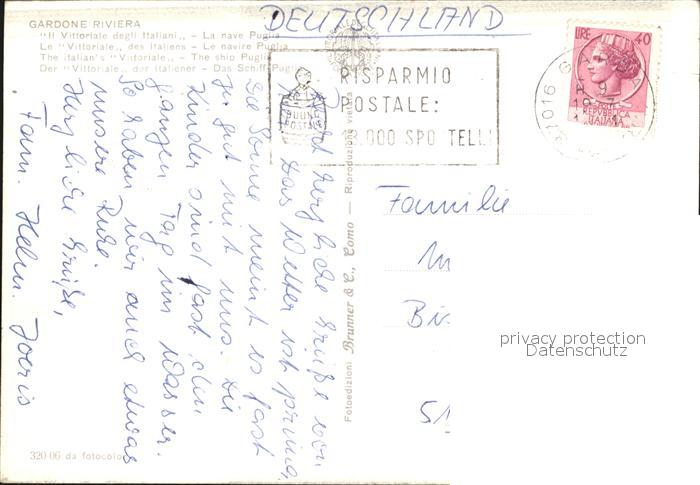 DEUTSCHLAND
GARDONE RIVIERA
"Il Vittoriale degli Italiani„ - La nave Puglia
Le "Vittoriale„ des Italiens - Le navire Puglia
The italian's "Vittoriale„ - The ship Puglia
Der "Vittoriale„ der Italiener - Das Schiff Puglia
RISPARMIO
POSTALE:
.000 SPO TELLI
BUONI
POSTALI
LIRE 40
REPUBBLICA
ITALIANA
37016 GA
herzliche Grüße von
Das Wetter ist prima,
die Sonne meint es fast
zu gut mit uns. Die
Kinder sind fast den
ganzen Tag im Wasser.
So haben wir auch etwas
unsere Ruhe.
Herzliche Grüße,
Fam. Helm. Joeris
Fotoedizioni Brunner & C., Como — Riproduzione vietata
Familie
Bi
51
privacy protection
Datenschutz
320 06 da fotocolor